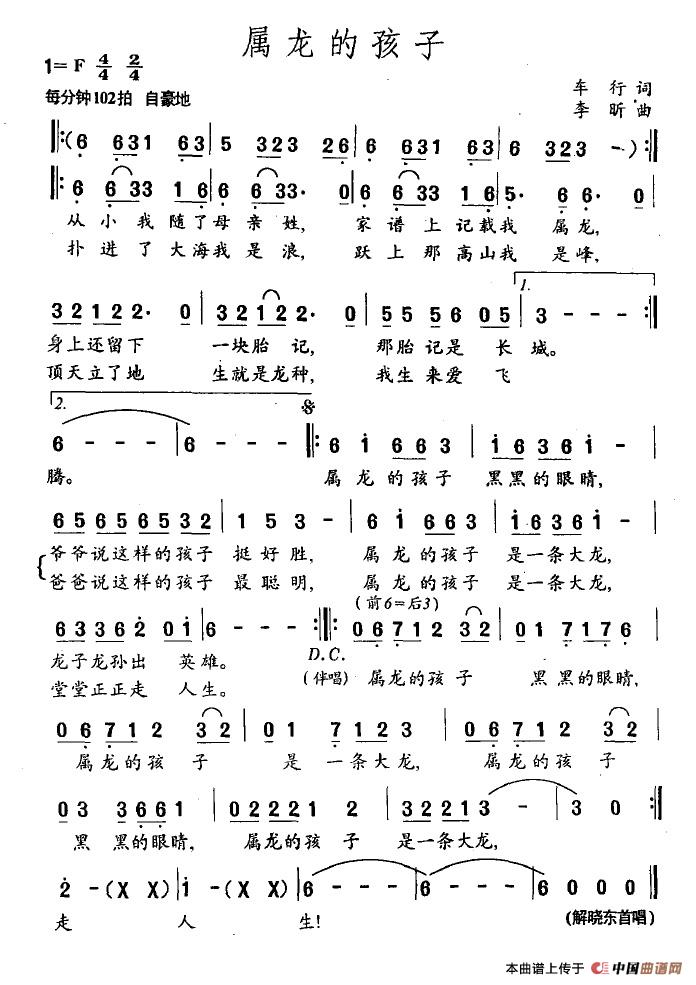 属龙的孩子
1= F 4/4 2/4
每分钟102拍 自豪地
车 行 词
李 昕 曲
‖:(6 631 63 | 5 323 26 | 6 631 63 | 6 323 - ):‖
‖: 6 633 16 | 6 633· 0 | 6 633 16 | 5· 66· 0 |
从小我随了母亲姓, 家谱上记载我 属龙,
扑进了大海我是浪, 跃上那高山我 是峰,
1.
32122· 0 | 32122· 0 | 55 56 05 | 3 - - :‖
身上还留下 一块胎记, 那胎记是 长城。
顶天立了地 生就是龙种, 我生来爱 飞
2.
6 - - - | 6 - - - ‖: 6 1 66 3 | 16 36 1 - |
腾。 属龙的孩子 黑黑的眼睛,
65 65 65 32 | 1 5 3 - | 6 1 66 3 | 16 36 1 - |
爷爷说这样的孩子 挺好胜, 属龙的孩子 是一条大龙,
爸爸说这样的孩子 最聪明, 属龙的孩子 是一条大龙,
(前6=后3)
63 36 2 01 | 6 - - :‖: 06 71 2 32 | 01 71 7 6 |
龙子龙孙出 英雄。 D.C. (伴唱) 属龙的孩子 黑黑的眼睛,
堂堂正正走 人生。
06 71 2 32 | 01 71 2 3 | 06 71 2 32 |
属龙的孩子 是一条大龙, 属龙的孩子
03 36 6 1 | 02 22 1 2 | 32 22 1 3 - | 3 0 :‖
黑黑的眼睛, 属龙的孩子 是一条大龙,
2 - (X X) | 1 - (X X) | 6 - - - | 6 - - - | 6 0 0 0 ‖
走 人 生!
(解晓东首唱)
本曲谱上传于 中国曲谱网